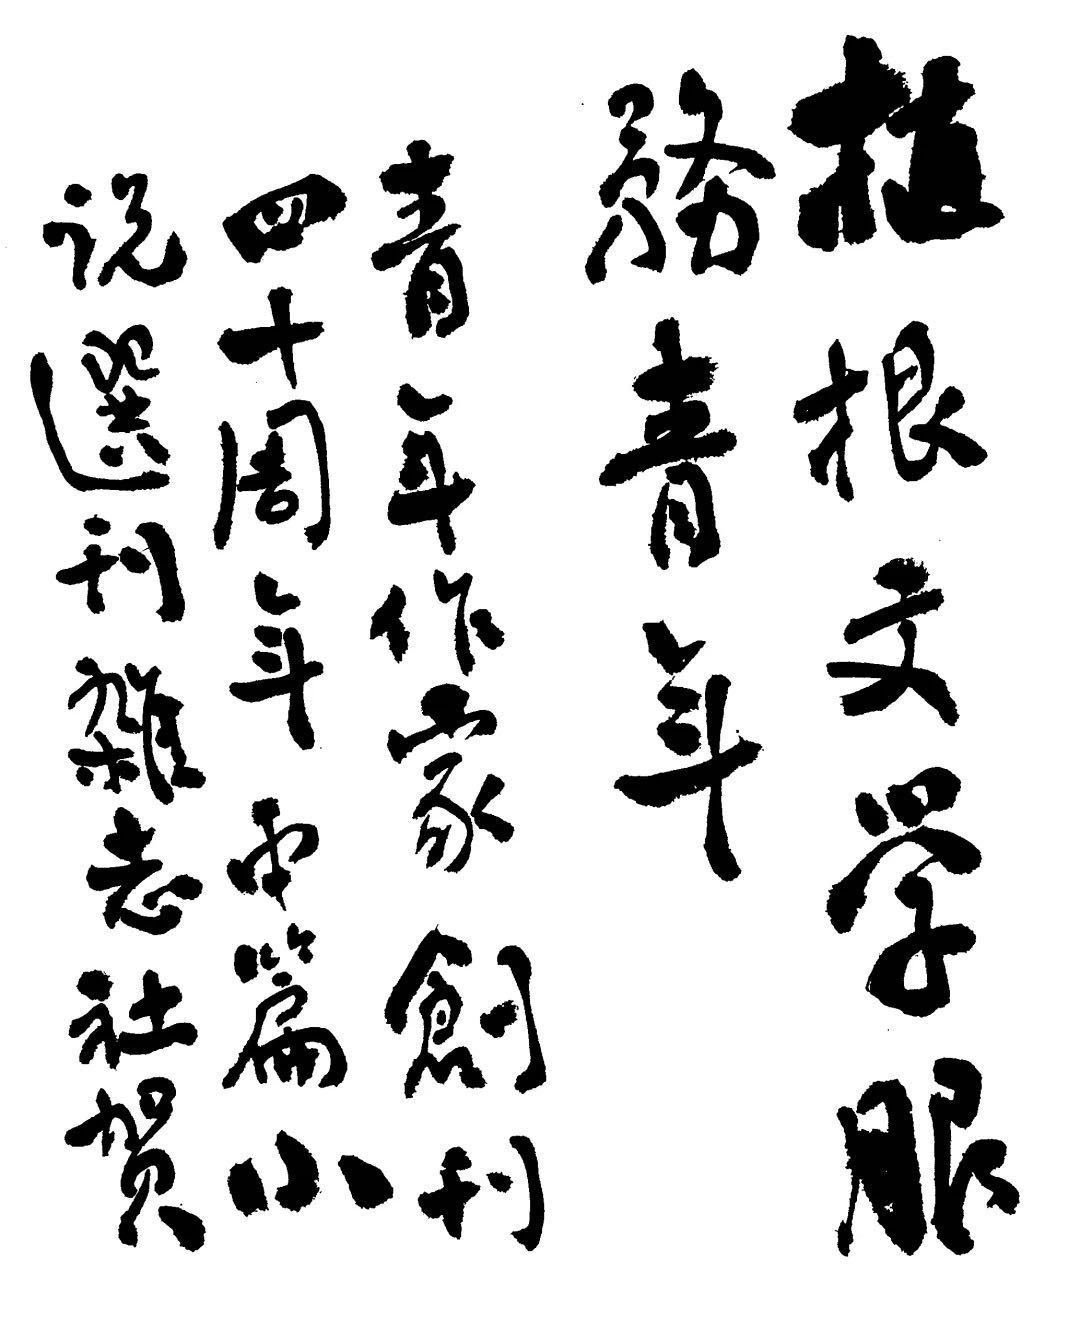 植根文学服
務青年
青年作家創刊
四十周年中篇小
说選刊雜志社贺